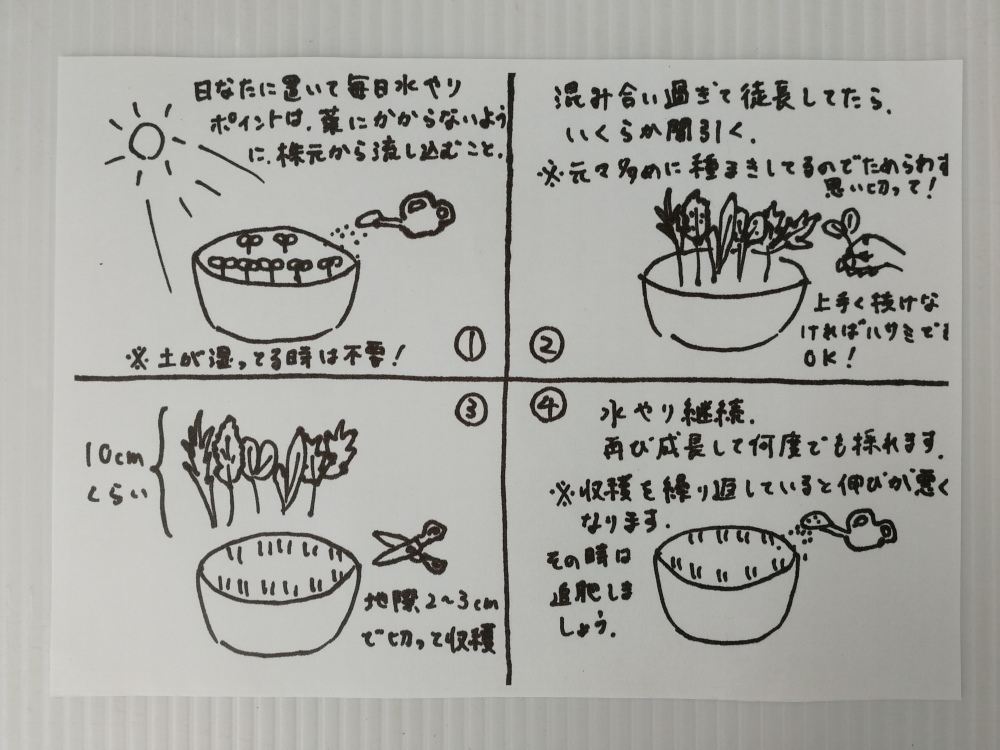 日なたに置いて毎日水やり
ポイントは、葉にかからないよう
に、株元から流し込むこと。
※土が湿ってる時は不要!
①
混み合い過ぎて徒長してたら、
いくらか間引く。
※元々多めに種まきしてるのでためらわず
思い切って!
上手く抜けな
ければハサミでも
OK!
②
③
10cm
くらい
地際2~3cm
で切って収穫
④
水やり継続。
再び成長して何度でも採れます。
※収穫を繰り返していると伸びが悪く
なります。
その時は
追肥しま
しょう。